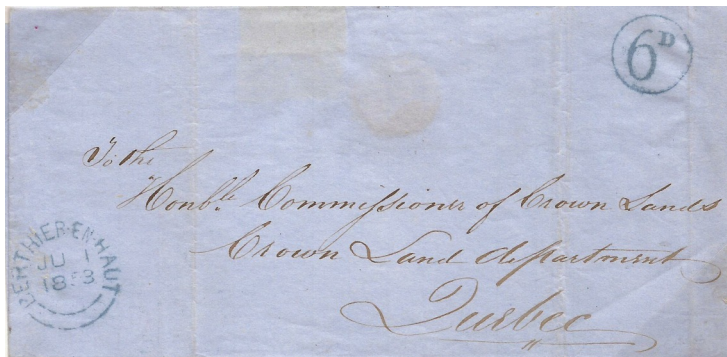 6D
To the
Honble. Commissioner of Crown Lands
Crown Land department
Quebec
BERTHIER-EN-HAUT
JU 1
1853